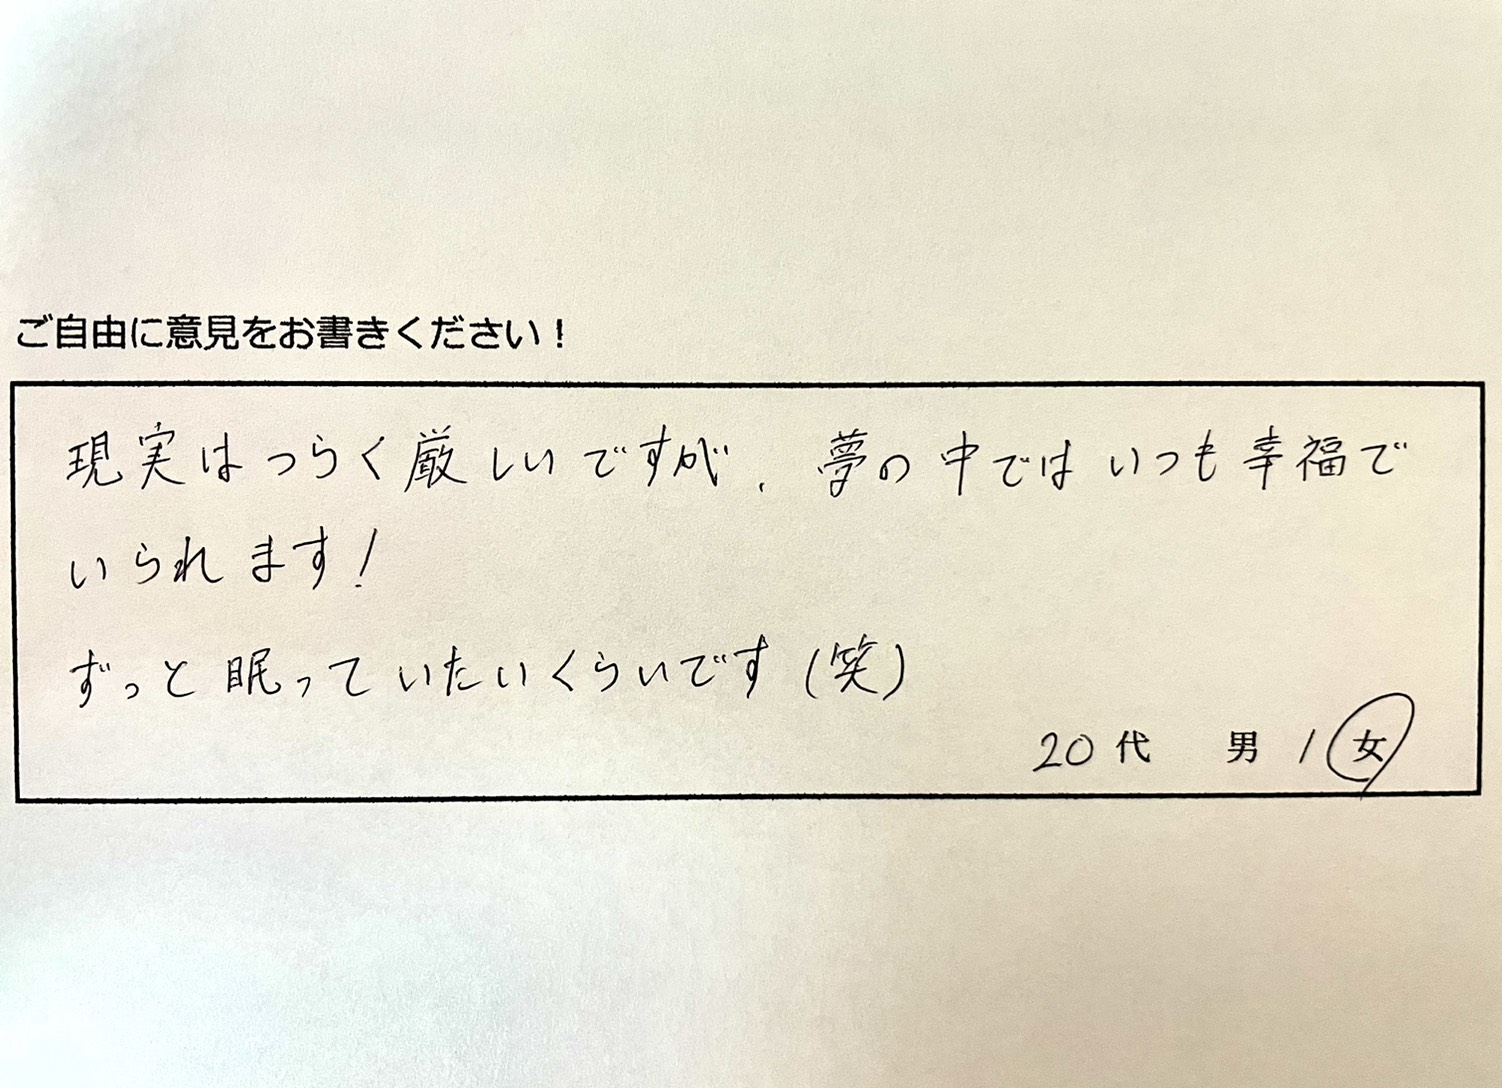 ご自由に意見をお書きください！
現実はつらく厳しいですが、夢の中ではいつも幸福で
いられます！
ずっと眠っていたいくらいです（笑）
20代 男 / 女